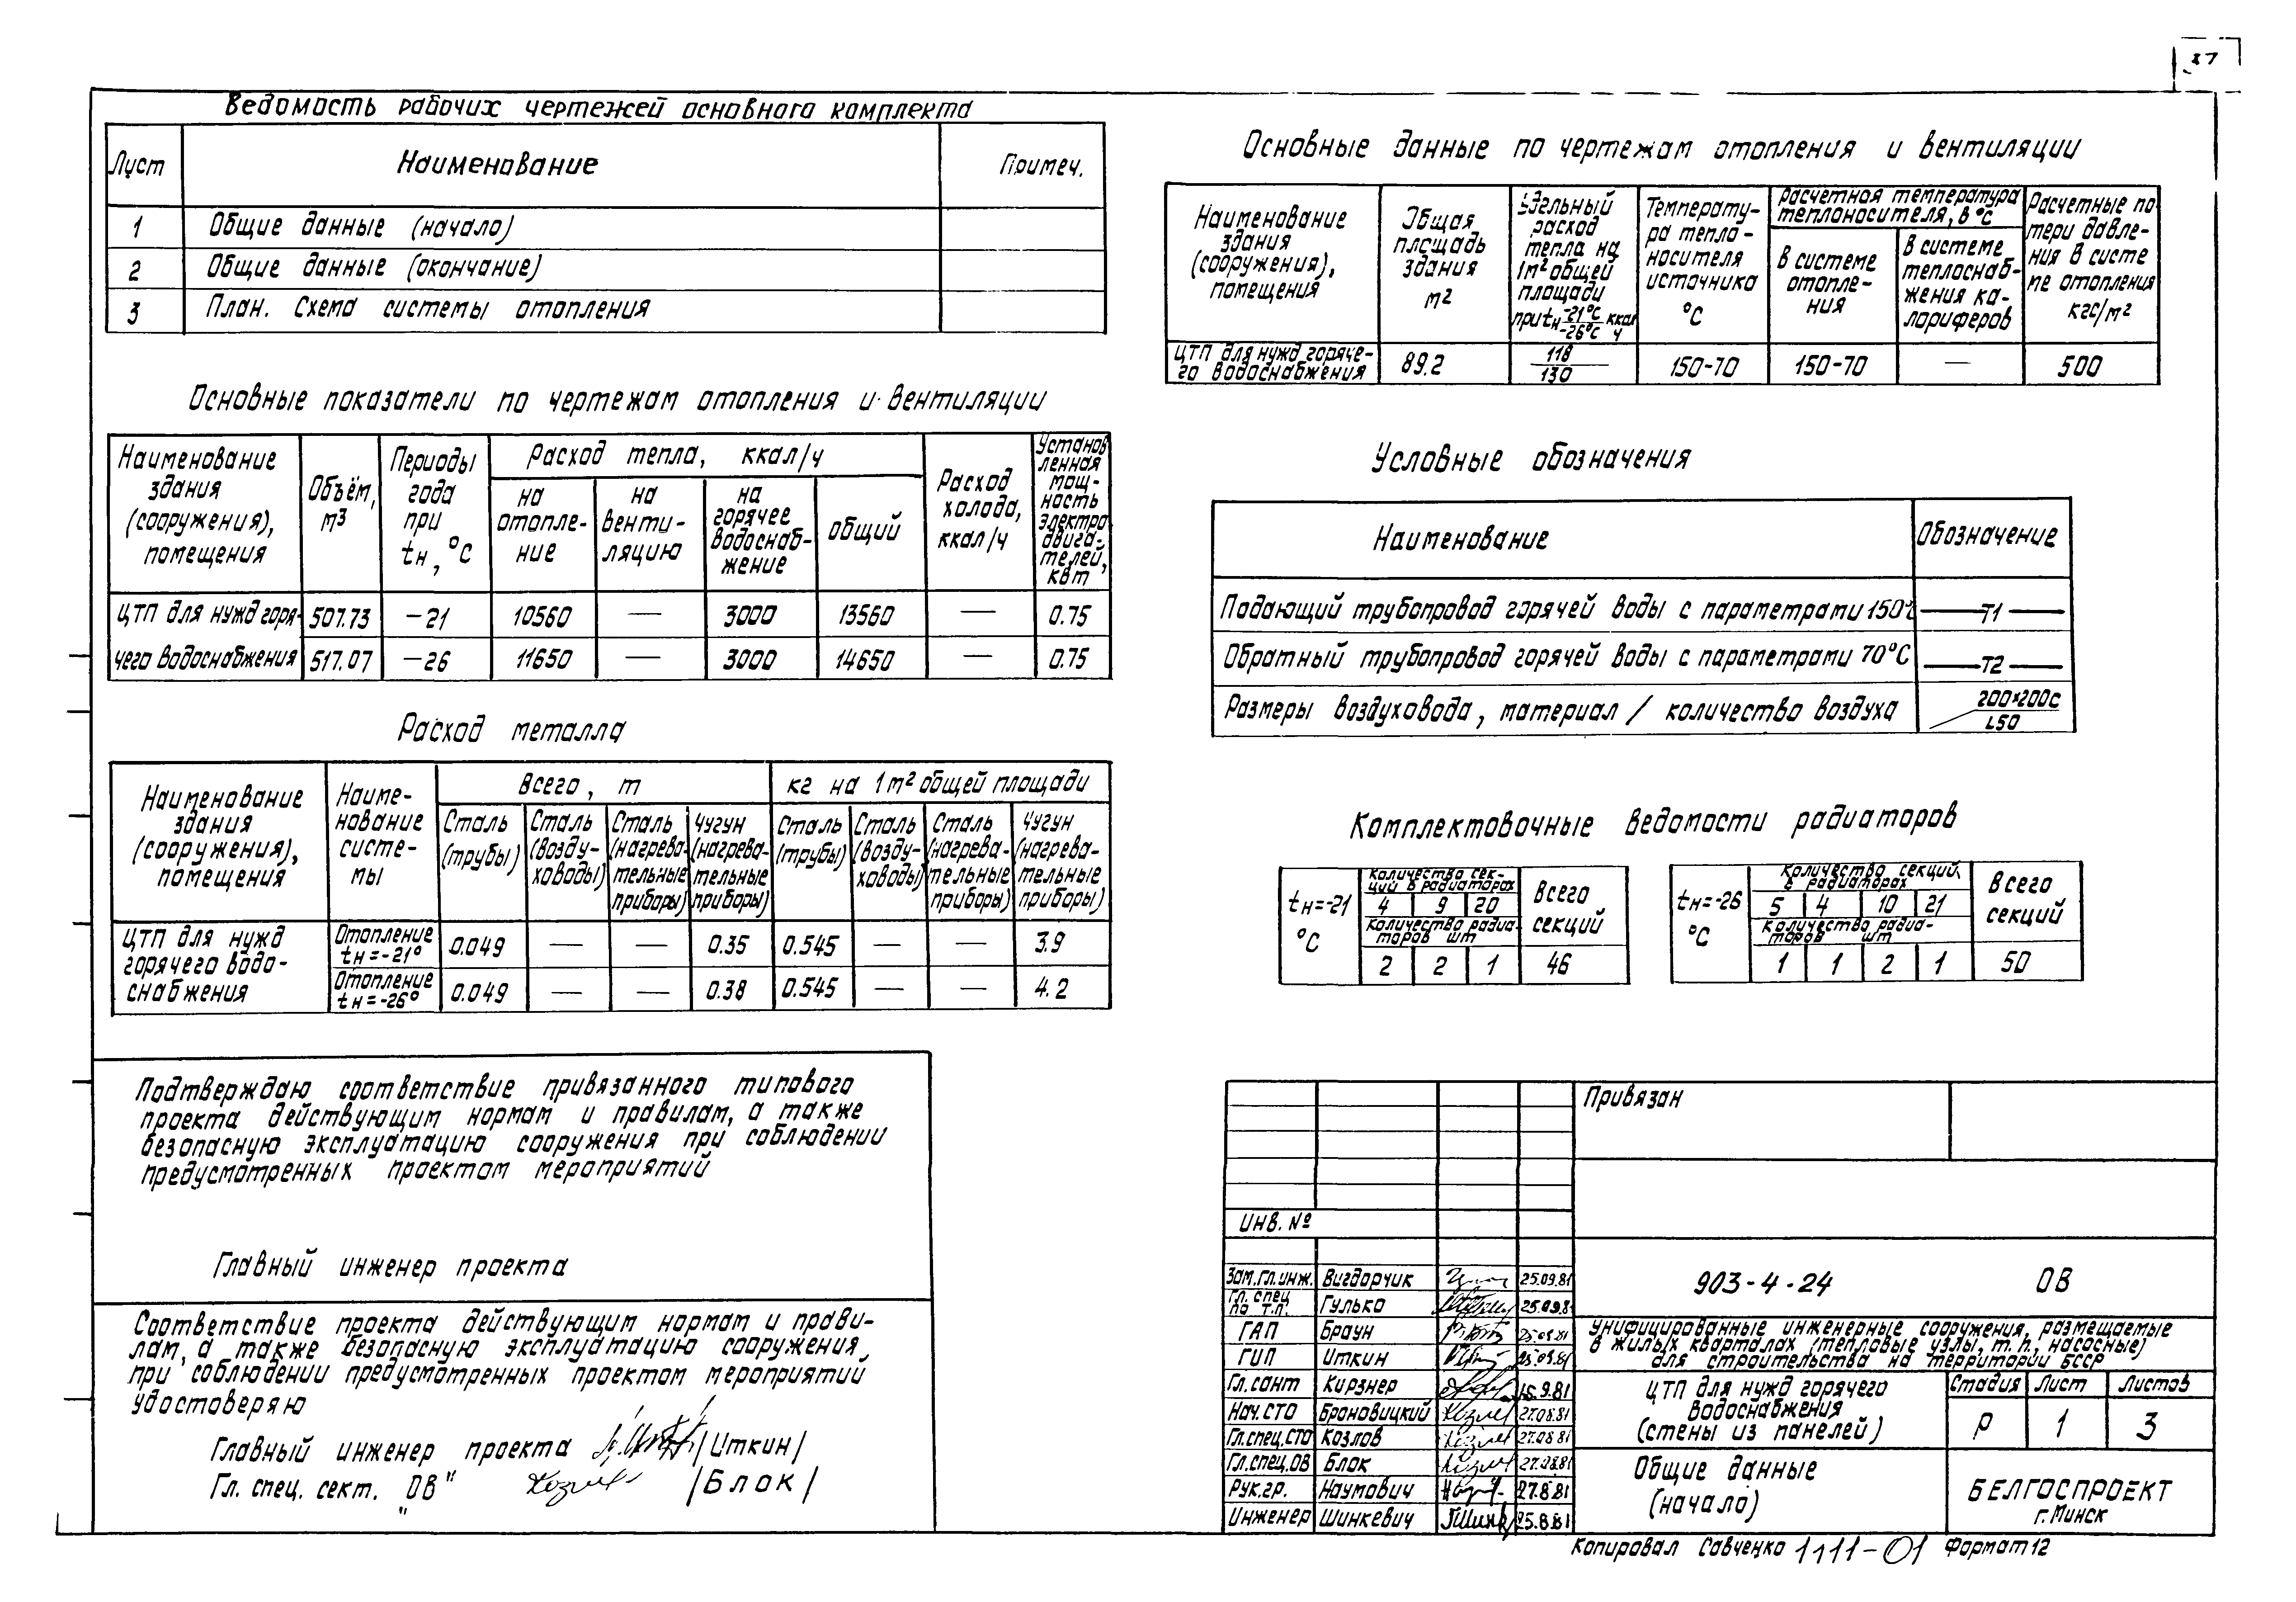 27
Ведомость рабочих чертежей основного комплекта
Лист Наименование Примеч.
1 Общие данные (начало)
2 Общие данные (окончание)
3 План. Схема системы отопления
Основные показатели по чертежам отопления и вентиляции
Наименование здания (сооружения), помещения Объём, м3 Периоды года при tн, °С Расход тепла, ккал/ч Расход холода, ккал/ч Установленная мощность электродвигателей, квт
на отопление на вентиляцию на горячее водоснабжение общий
ЦТП для нужд горя- 507.73 -21 10560 — 3000 13560 — 0.75
чего водоснабжения 517.07 -26 11650 — 3000 14650 — 0.75
Расход металла
Наименование здания (сооружения), помещения Наименование системы Всего, т кг на 1м² общей площади
Сталь (трубы) Сталь (воздуховоды) Сталь (нагревательные приборы) Чугун (нагревательные приборы) Сталь (трубы) Сталь (воздуховоды) Сталь (нагревательные приборы) Чугун (нагревательные приборы)
ЦТП для нужд горячего водоснабжения
Отопление tн=-21° 0.049 — — 0.35 0.545 — — 3.9
Отопление tн=-26° 0.049 — — 0.38 0.545 — — 4.2
Подтверждаю соответствие привязанного типового
проекта действующим нормам и правилам, а также
безопасную эксплуатацию сооружения при соблюдении
предусмотренных проектом мероприятий
Главный инженер проекта
Соответствие проекта действующим нормам и прави-
лам, а также безопасную эксплуатацию сооружения,
при соблюдении предусмотренных проектом мероприятий
удостоверяю
Главный инженер проекта /Иткин/
Гл. спец. сект. "ОВ" /Блок/
Основные данные по чертежам отопления и вентиляции
Наименование здания (сооружения), помещения Общая площадь здания м² Удельный расход тепла на 1м² общей площади при tн -21°С/-26°С ккал/ч Температура теплоносителя источника °С Расчетная температура теплоносителя, в °С Расчетные потери давления в системе отопления кгс/м²
В системе отопления В системе теплоснабжения калориферов
ЦТП для нужд горяче-
го водоснабжения 89.2 118/130 150-70 150-70 — 500
Условные обозначения
Наименование Обозначение
Подающий трубопровод горячей воды с параметрами 150°С —Т1—
Обратный трубопровод горячей воды с параметрами 70°С —Т2—
Размеры воздуховода, материал / количество воздуха 200×200С/L50
Комплектовочные ведомости радиаторов
tн=-21 °С Количество секций в радиаторах Всего секций
4 9 20
Количество радиаторов шт
2 2 1 46
tн=-26 °С Количество секций в радиаторах Всего секций
5 4 10 21
Количество радиаторов шт
1 1 2 1 50
Привязан
Инв. №
Зам.гл.инж. Вигдорчик 25.09.81
Гл. спец по т.п. Гулько 25.09.81
ГАП Браун 25.09.81
ГИП Иткин 25.09.81
Гл.сант Кирзнер 15.9.81
Нач.СТО Броновицкий 27.08.81
Гл.спец.СТО Козлов 27.08.81
Гл.спец.ОВ Блок 27.08.81
Рук.гр. Наумович 27.8.81
Инженер Шинкевич 25.8.81
903-4-24 ОВ
Унифицированные инженерные сооружения, размещаемые
в жилых кварталах (тепловые узлы, т.п., насосные)
для строительства на территории БССР
ЦТП для нужд горячего
водоснабжения
(стены из панелей)
Стадия Лист Листов
Р 1 3
Общие данные
(начало)
БЕЛГОСПРОЕКТ
г. Минск
Копировал Савченко 1111-01 Формат 12